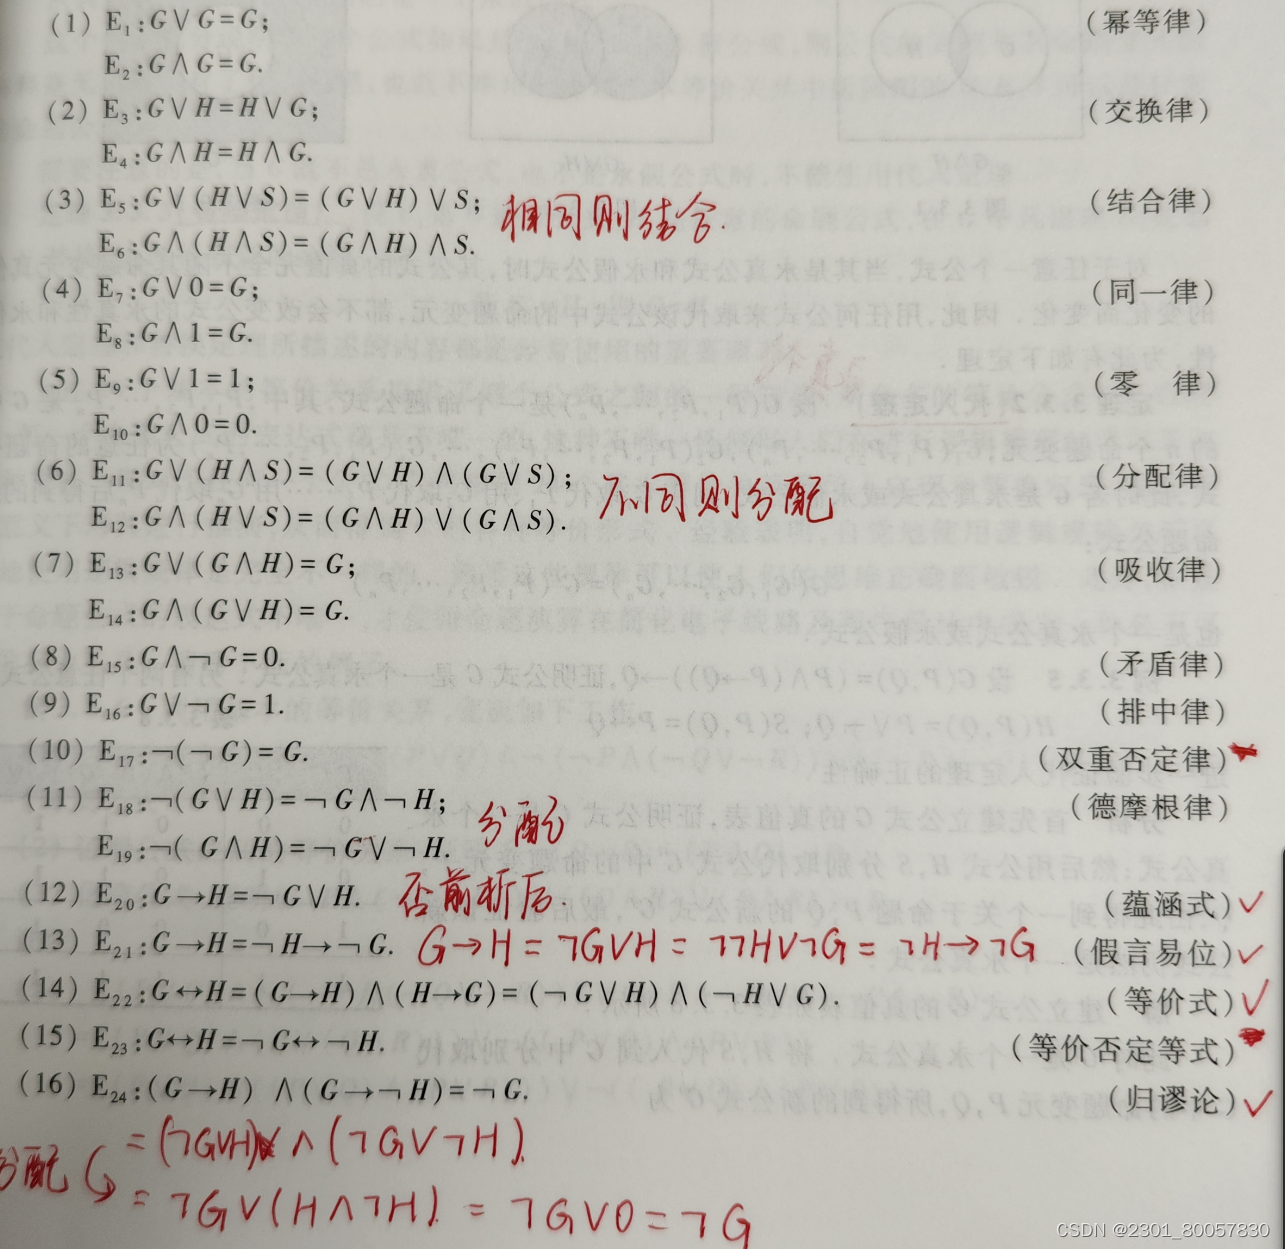 (1) E₁:G∨G=G; (幂等律)
E₂:G∧G=G.
(2) E₃:G∨H=H∨G; (交换律)
E₄:G∧H=H∧G.
(3) E₅:G∨(H∨S)=(G∨H)∨S; 相同则结合. (结合律)
E₆:G∧(H∧S)=(G∧H)∧S.
(4) E₇:G∨0=G; (同一律)
E₈:G∧1=G.
(5) E₉:G∨1=1; (零 律)
E₁₀:G∧0=0.
(6) E₁₁:G∨(H∧S)=(G∨H)∧(G∨S); 不同则分配 (分配律)
E₁₂:G∧(H∨S)=(G∧H)∨(G∧S).
(7) E₁₃:G∨(G∧H)=G; (吸收律)
E₁₄:G∧(G∨H)=G.
(8) E₁₅:G∧¬G=0. (矛盾律)
(9) E₁₆:G∨¬G=1. (排中律)
(10) E₁₇:¬(¬G)=G. (双重否定律)
(11) E₁₈:¬(G∨H)=¬G∧¬H; 分配 (德摩根律)
E₁₉:¬(G∧H)=¬G∨¬H.
(12) E₂₀:G→H=¬G∨H. 否前析后. (蕴涵式) ✓
(13) E₂₁:G→H=¬H→¬G. G→H=¬G∨H=¬¬H∨¬G=¬H→¬G (假言易位) ✓
(14) E₂₂:G↔H=(G→H)∧(H→G)=(¬G∨H)∧(¬H∨G). (等价式) ✓
(15) E₂₃:G↔H=¬G↔¬H. (等价否定等式)
(16) E₂₄:(G→H)∧(G→¬H)=¬G. (归谬论) ✓
=(¬G∨H)∧(¬G∨¬H).
分配 =¬G∨(H∧¬H).=¬G∨0=¬G
CSDN @2301_80057830